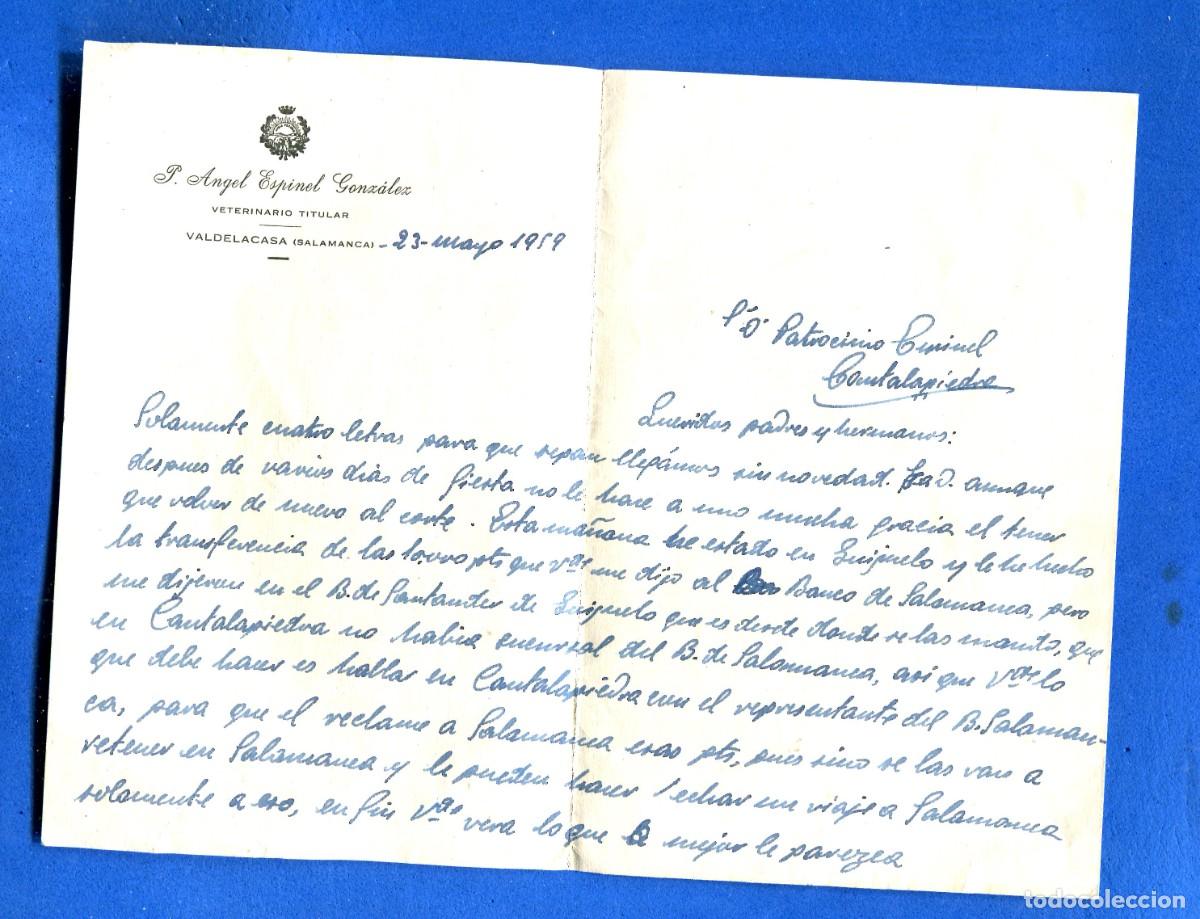 P. Angel Espinel González
VETERINARIO TITULAR
VALDELACASA (SALAMANCA) - 23-mayo 1959
Patrocinio Espinel
Cantalapiedra
Queridos padres y hermanos:
Solamente cuatro letras para que sepan llegámos sin novedad. aunque
despues de varios dias de fiesta no le hace a uno mucha gracia el tener
que volver de nuevo al corte. Esta mañana he estado en Guijuelo y le he hecho
la transferencia de las pts que me dijo al Banco de Salamanca, pero
me dijeron en el B. de Santander de Guijuelo que es desde donde se las mando, que
en Cantalapiedra no habia sucursal del B. de Salamanca, asi que lo
que debe hacer es hablar en Cantalapiedra con el representante del B. Salaman-
ca, para que el reclame a Salamanca esas pts, pues sino se las van a
retener en Salamanca y le pueden hacer echar un viaje a Salamanca
solamente a eso, en fin vera lo que mejor le parezca
todocoleccion